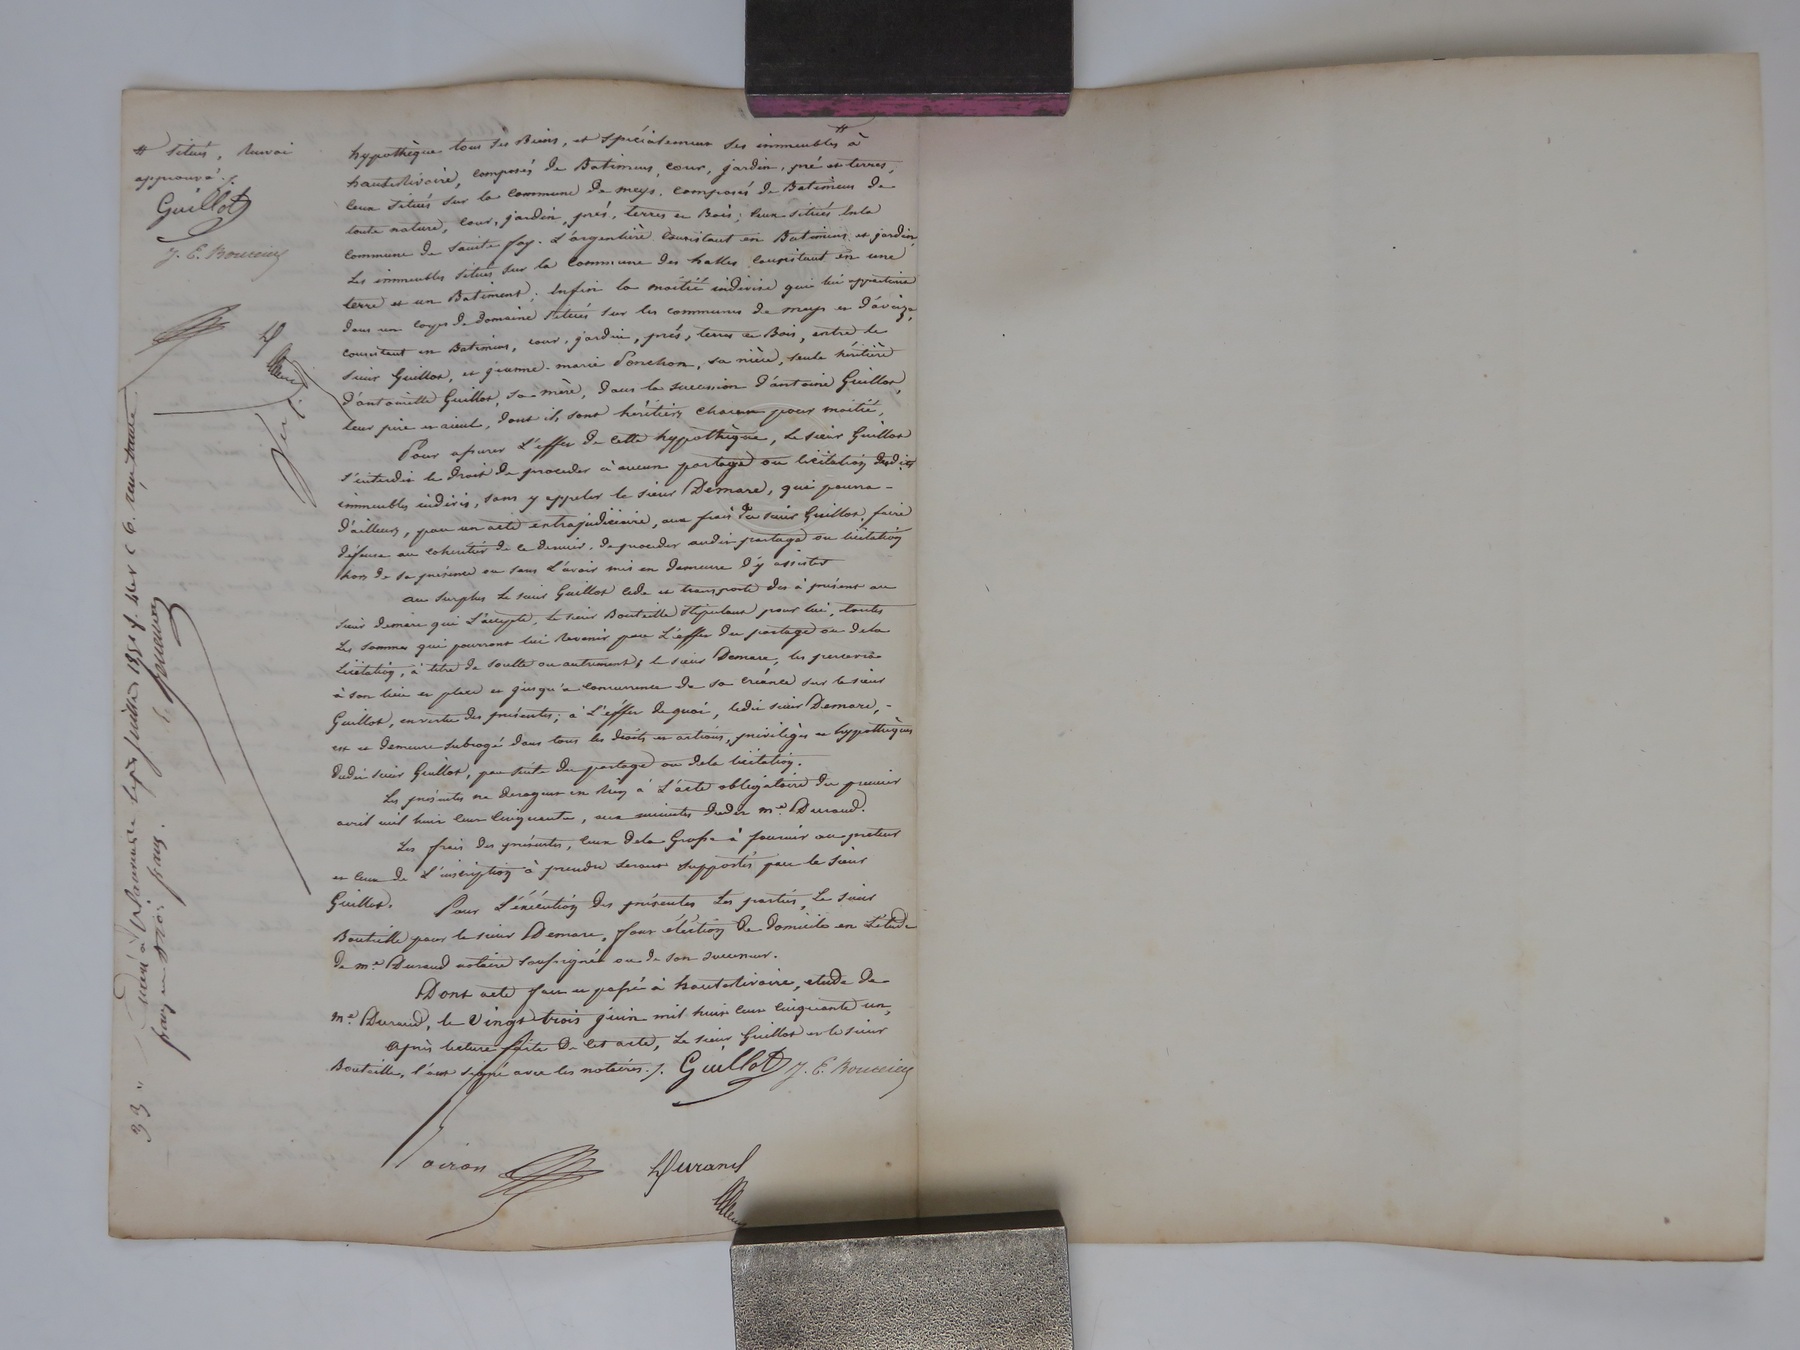 # situés, renvoi
approuvé ./.
Guillot
J. E. Bouteille
hypothèque tous ses Biens, et spécialement ses immeubles # à
hauterivoire, composés de Batimens, cour, jardin, pré et terres,
ceux situés sur la commune de meys, composés de Batimens de
toute nature, cour, jardin, prés, terres et Bois; ceux situés sur la
commune de sainte foy-L'argentière consistant en Batimens et jardin,
Les immeubles situés sur la commune des halles consistant en une
terre et un Batiment; Enfin la moitié indivise qui lui appartient
dans un corps de domaine situés sur les communes de meys et d'aveize,
consistant en Batimens, cour, jardin, prés, terres et Bois, entre le
sieur Guillot, et jeanne-marie Ponchon, sa nièce, seule héritière
d'antoinette Guillot, sa mère, dans la succession d'antoine Guillot,
leur père et aieul, dont ils sont héritiers chacun pour moitié,
Pour assurer L'effet de cette hypothèque, Le sieur Guillot
s'interdit le droit de proceder à aucun partage ou licitation desdits
immeubles indivis, sans y appeler le sieur Demare, qui pourra-
d'ailleurs, par un acte extrajudiciaire, aux frais du sieur Guillot, faire
défense au coheritier de ce dernier, de proceder audit partage ou licitation
hors de sa présence ou sans L'avoir mis en demeure d'y assister
au surplus Le sieur Guillot cede et transporte dès à présent au
sieur demare qui L'accepte, le sieur Bouteille stipulant pour lui, toutes
Les sommes qui pourront lui revenir par L'effet du partage ou dela
Licitation, à titre de soulte ou autrement; le sieur Demare, les percevra
à son lieu et place et jusqu'à concurrence de sa créance sur le sieur
Guillot, en vertu des présentes; à L'effet de quoi, ledit sieur Demare,-
est et demeure subrogé dans tous les droits et actions, privilèges et hypothèques
dudit sieur Guillot, par suite du partage ou dela licitation.
Les présentes ne derogent en rien à L'acte obligatoire du premier
avril mil huit cent cinquante, aux minutes dudit me Durand.
Les frais des présentes, ceux dela Grosse à fournir au preteur
et ceux de L'inscription à prendre seront supportés par le sieur
Guillot. Pour L'éxécution des présentes Les parties, Le sieur
Bouteille pour le sieur Demare, font élection de domicile en L'étude
de me Durand notaire soussigné ou de son successeur.
Dont acte fait et passé à hauterivoire, etude de
me Durand, le vingt trois juin mil huit cent cinquante un,
après lecture faite de cet acte, Le sieur Guillot et le sieur
Bouteille, l'ont signé avec les notaires ./. Guillot J. E. Bouteille
Voiron Durand
33 "